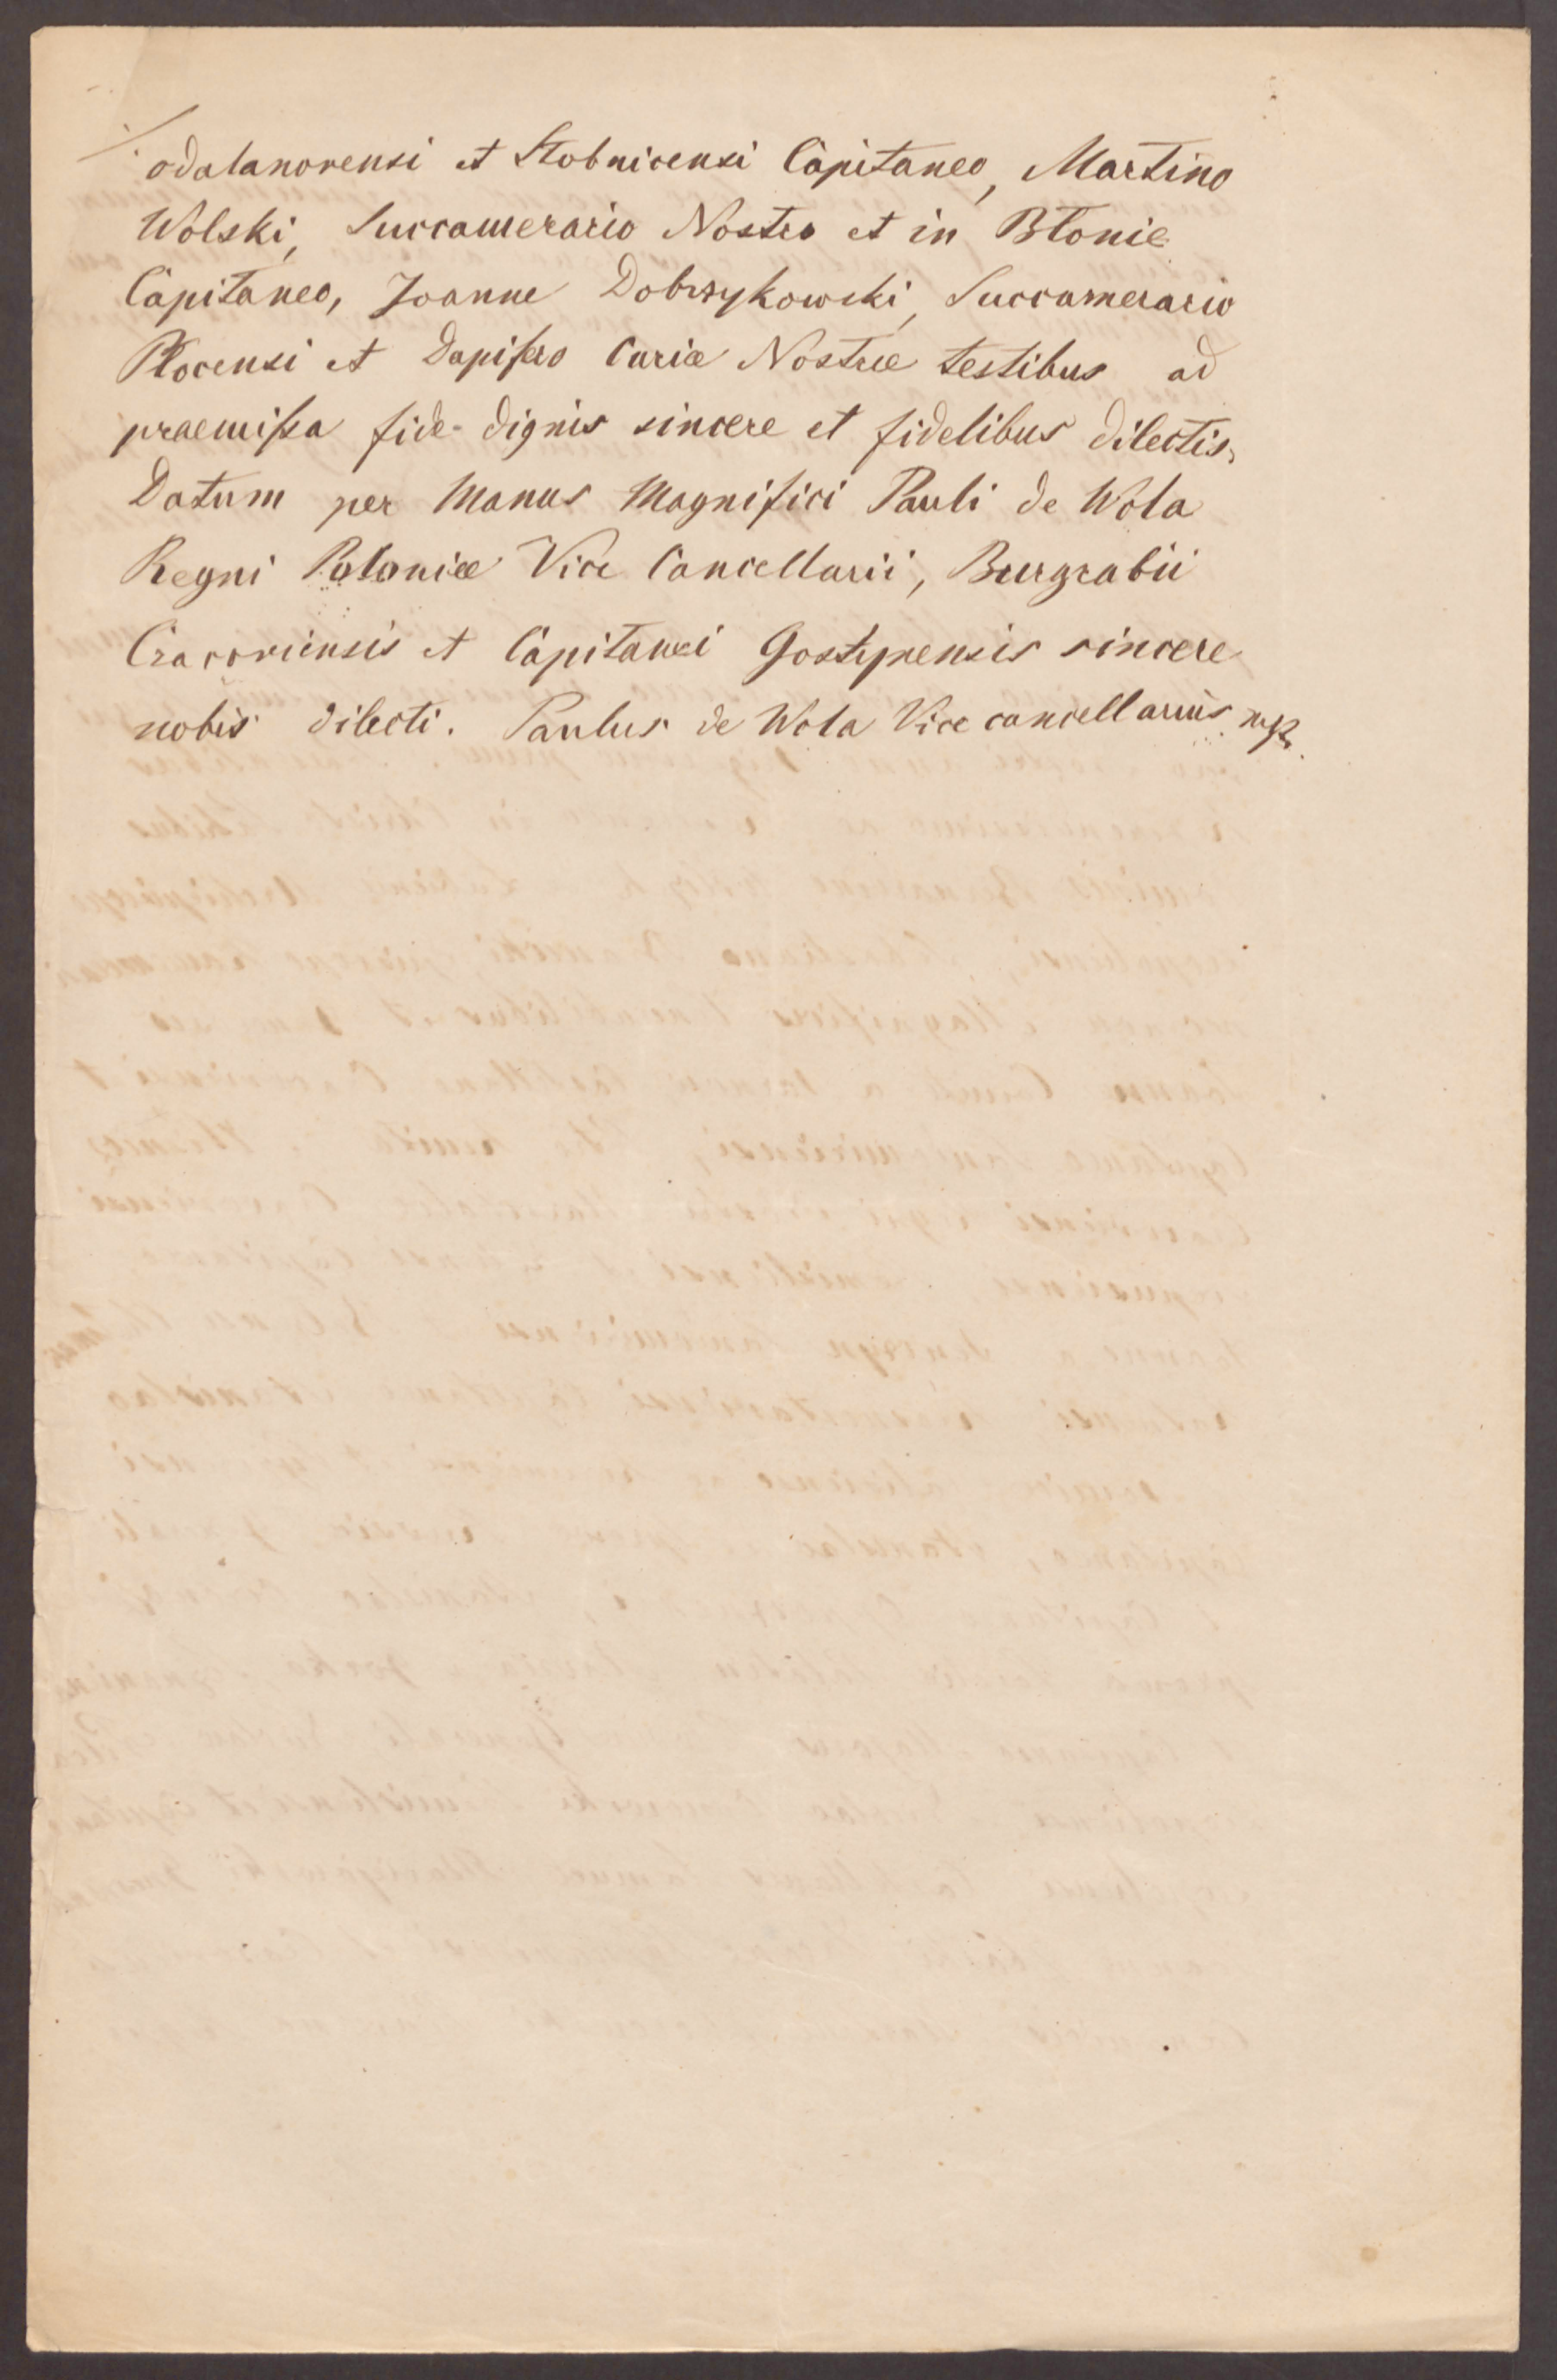 odalanovensi et Stobnicensi Capitaneo, Martino
Wolski, Succamerario Nostro et in Błonie
Capitaneo, Joanne Dobrzykowski, Succamerario
Plocensi et Dapifero Curiæ Nostræ testibus ad
praemissa fide-dignis sincere et fidelibus dilectis.
Datum per Manus Magnifici Pauli de Wola
Regni Poloniæ Vice Cancellarii, Burgrabii
Cracoviensis et Capitanei Gostynensis sincere
nobis dilecti. Paulus de Wola Vice cancellarius mp.